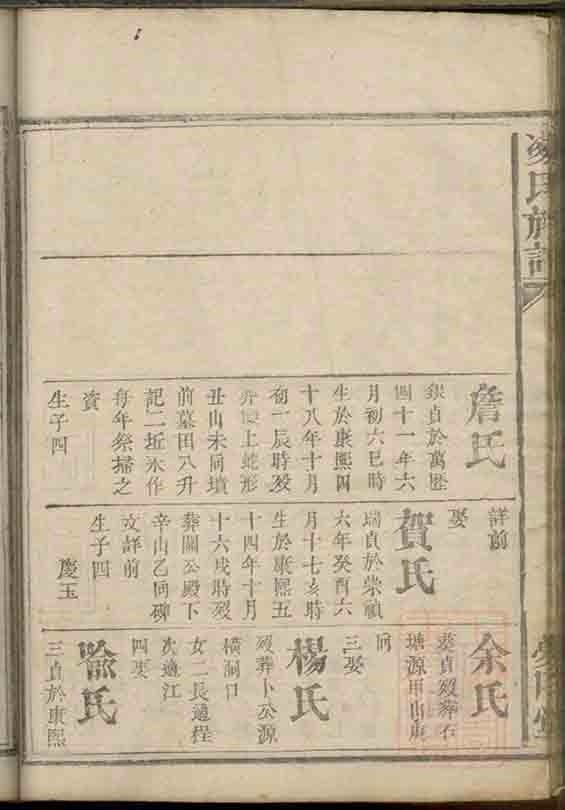 凌氏族譜
詹氏
銀貞於萬歷
四十一年六
月初六巳時
生於康熙四
十八年十月
初一辰時歿
上蛇形
丑山未同墳
前墓田八升
記二坵永作
每年祭掃之
資
生子四
詳前
娶
賀氏
瑞貞於崇禎
六年癸酉六
月十七亥時
生於康熙五
十四年十月
十六戌時歿
葬關公殿下
辛山乙向碑
文詳前
生子四
慶玉
余氏
葵貞歿葬石
塘源甲山庚
向
三娶
楊氏
歿葬卜公源
橫洞口
女二長適程
次適江
四娶
喻氏
三貞於康熙